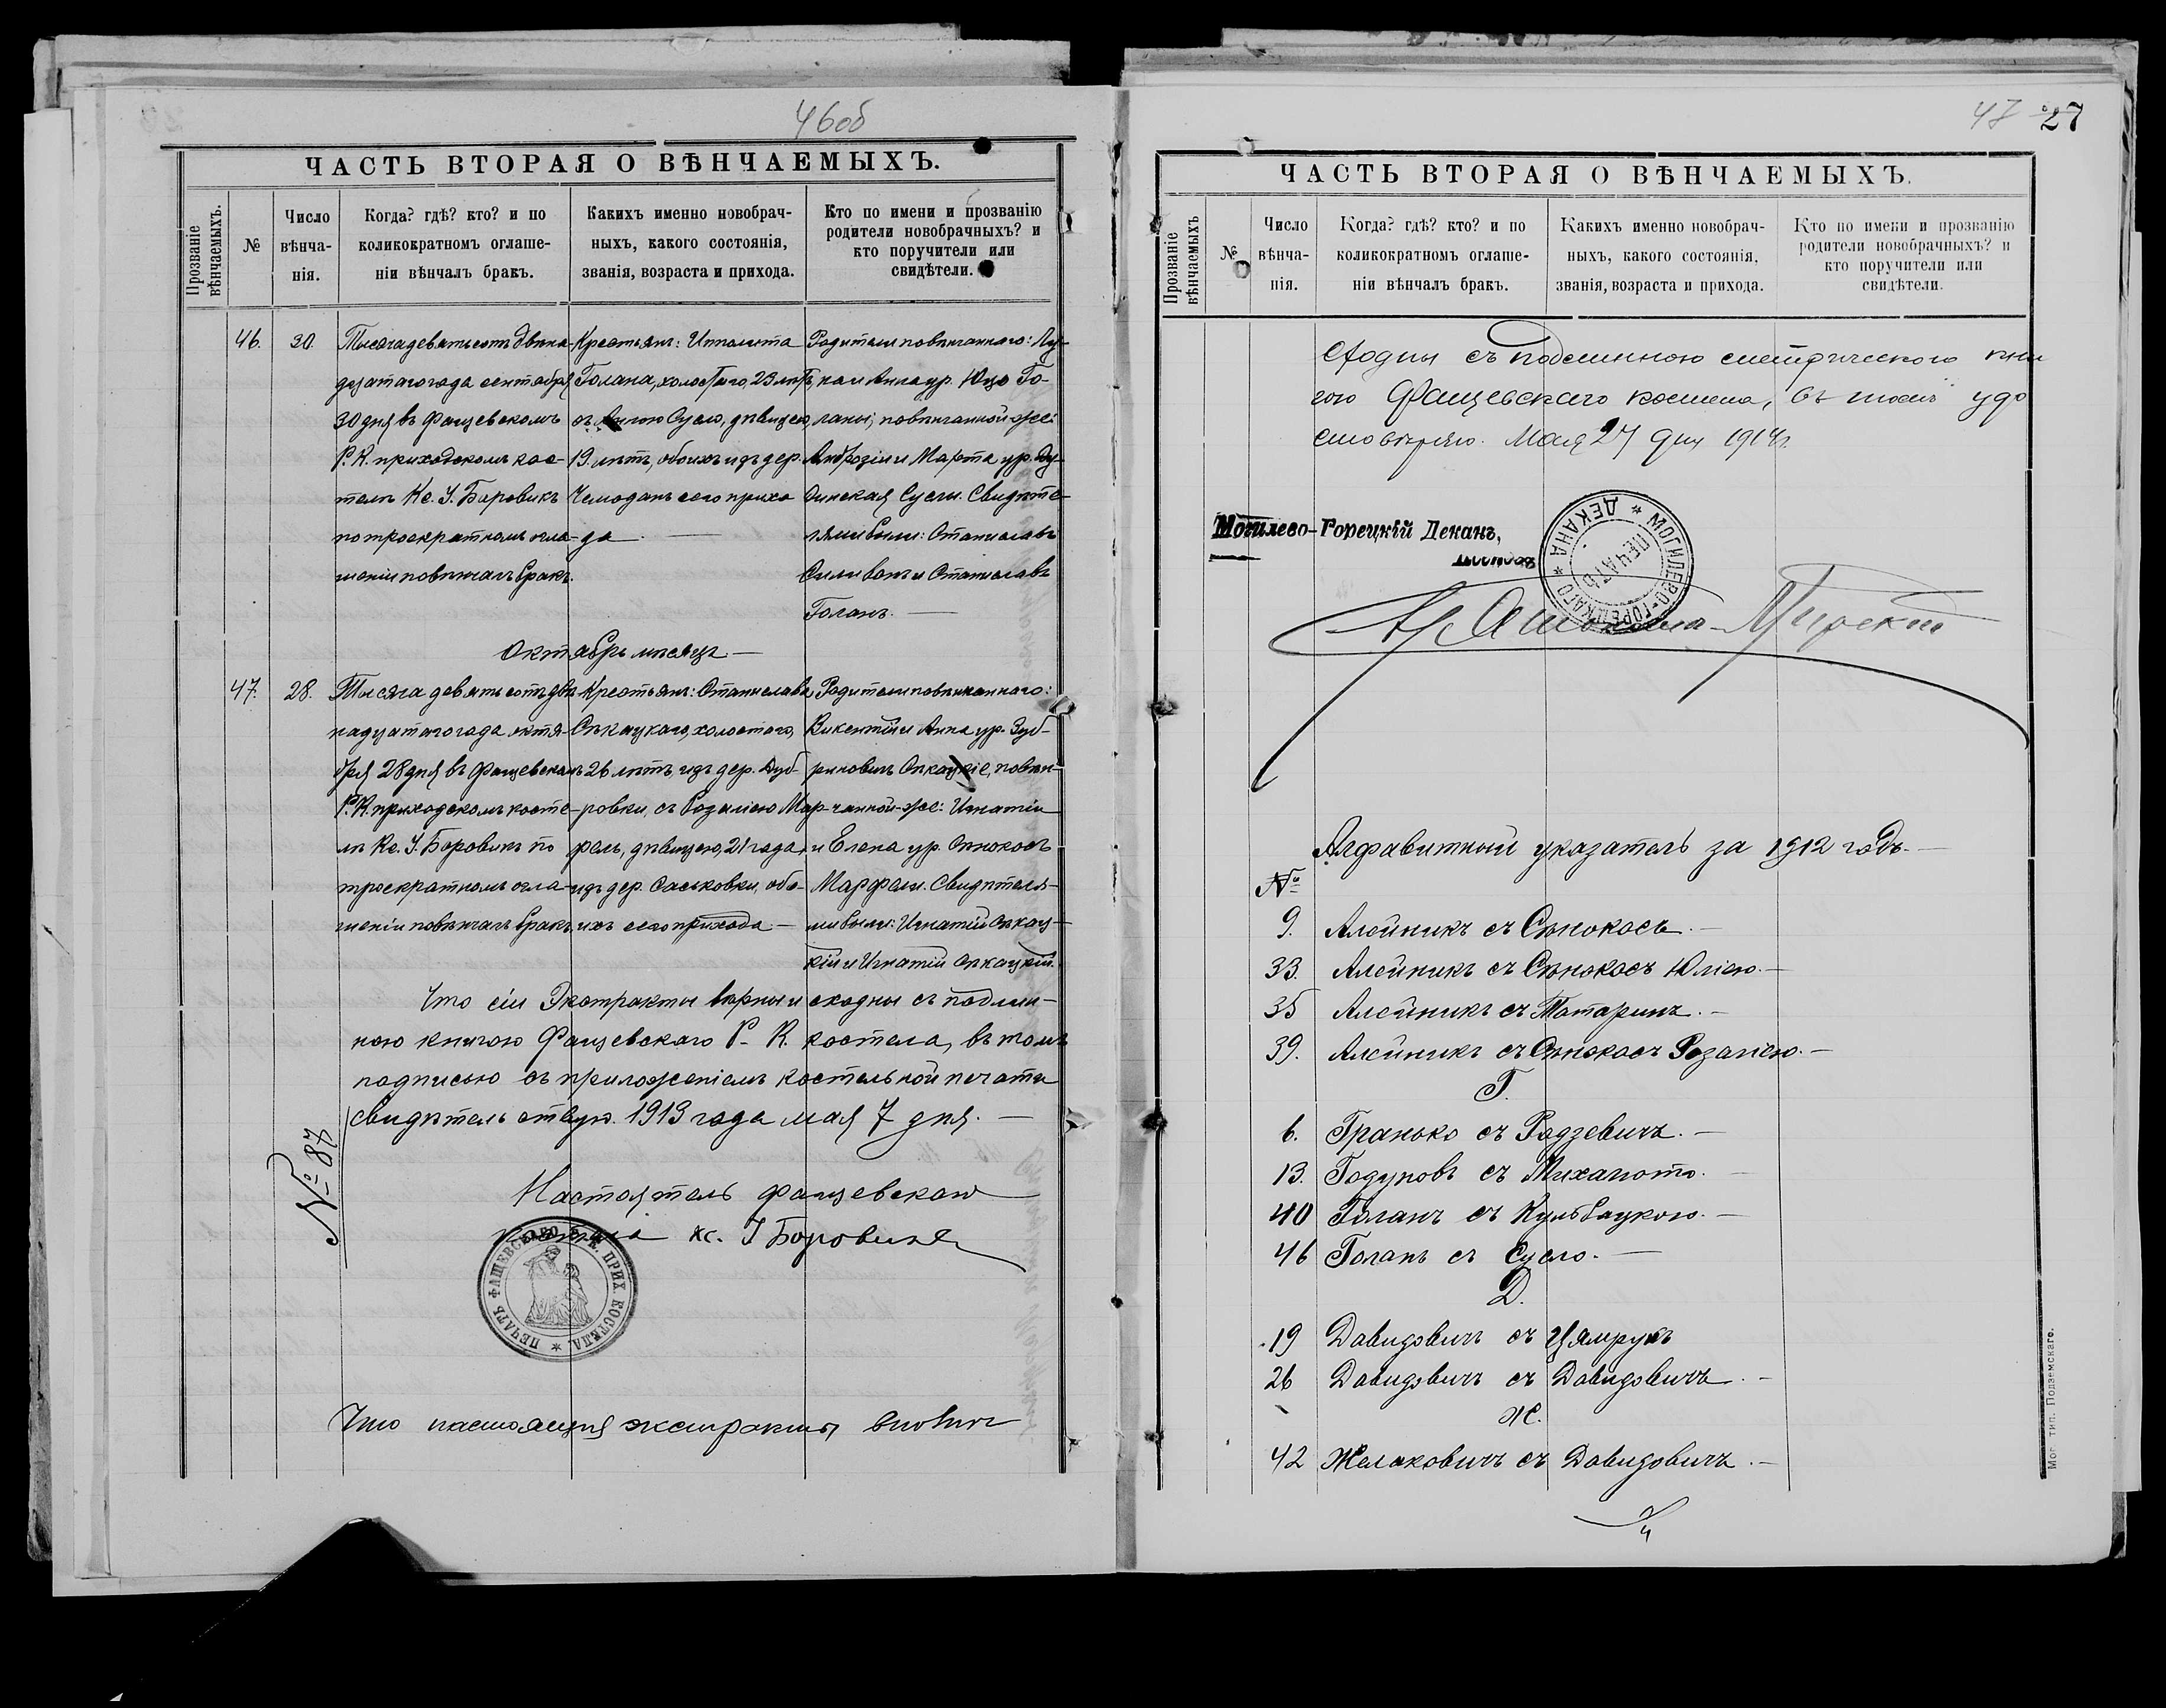 46об
ЧАСТЬ ВТОРАЯ О ВѢНЧАЕМЫХЪ.
Прозваніе вѣнчаемыхъ.
№
Число вѣнча-нія.
Когда? гдѣ? кто? и по коликократномъ оглаше-ніи вѣнчалъ бракъ.
Какихъ именно новобрач-ныхъ, какого состоянія, званія, возраста и прихода.
Кто по имени и прозванію родители новобрачныхъ? и кто поручители или свидѣтели.
46.
30.
Тысяча девятьсотъ двѣна-
дцатаго года сентября
30 дня въ Фащевскомъ
Р. К. приходскомъ кос-
телѣ Кс. І. Боровикъ
по троекратномъ огла-
шеніи повѣнчалъ бракъ.
Крестьянъ: Ипполита
Голана, холостаго, 23 лѣтъ,
съ Анною Сусло, дѣвицею,
19 лѣтъ, обоихъ изъ дер.
Чемоданъ сего прихо
да
Родители повѣнчаннаго: Лу-
каш Анна ур. Юцо Го-
ланы, повѣнчанной-же:
Амброзій и Марта ур.
Суслы. Свидѣте-
лями были: Станиславъ
Селивонъ и Станиславъ
Голанъ.
Октябрь мѣсяцъ
47.
28.
Тысяча девятьсотъ двѣ-
надцатаго года октя-
бря 28 дня въ Фащевскомъ
Р. К. приходскомъ косте-
лѣ Кс. І. Боровикъ по
троекратномъ огла-
шеніи повѣнчалъ бракъ.
Крестьянъ: Станислава
Спкацкаго, холостого,
26 лѣтъ, изъ дер. Дуб-
ровки, съ Розаліею Мар-
фель, дѣвицею, 21 года,
изъ дер. Саськовки, обо-
ихъ сего прихода
Родители повѣнчаннаго:
Викентій и Анна ур. Зуб-
риковичъ Спкацкіе, повѣн-
чанной-же: Игнатій
и Елена ур. Сѣнокосъ
Марфели. Свидѣтеля-
ми были: Игнатій Спкац-
кій и Игнатій Спкацкій.
Что сіи Экстракты вѣрны и сходны съ подлин-
ною книгою Фащевскаго Р. К. костела, въ томъ
подписью съ приложеніемъ костельной печати
свидѣтельствую. 1913 года мая 7 дня.
№ 87
Настоятель Фащевскаго
костела кс. І Боровикъ
ПЕЧАТЬ ФАЩЕВСКАГО Р. К. ПРИХ КОСТЕЛА
Что настоящія экстракты вполнѣ
47 27
ЧАСТЬ ВТОРАЯ О ВѢНЧАЕМЫХЪ.
Прозваніе вѣнчаемыхъ
№
Число вѣнча-нія.
Когда? гдѣ? кто? и по коликократномъ оглаше-ніи вѣнчалъ бракъ.
Какихъ именно новобрач-ныхъ, какого состоянія, званія, возраста и прихода.
Кто по имени и прозванію родители новобрачныхъ? и кто поручители или свидѣтели.
сходны съ подлинною метрическою кни
гою Фащевскаго костела, въ томъ удо
стовѣряю. Мая 27 дня 1914 г.
Могилево-Горецкій Деканъ,
МОГИЛЕВО-ГОРЕЦКАГО ДЕКАНА
ПЕЧАТЬ
Алфавитный указатель за 1912 годъ.
№
9. Алейникъ съ Сѣнокосъ.
33. Алейникъ съ Сѣнокосъ Юліею.
35 Алейникъ съ Татаринъ.
39. Алейникъ съ Сѣнокосъ Розаліею.
Г.
6. Гранько съ Родзевичъ.
13. Годуновъ съ Михалото.
40 Голанъ съ Кульбацкою.
46 Голанъ съ Сусло.
Д.
19 Давидовичъ съ Цямрукъ
26 Давидовичъ съ Давидовичъ.
Ж.
42 Желаковичъ съ Давидовичъ.
Мог. тип. Подземскаго.